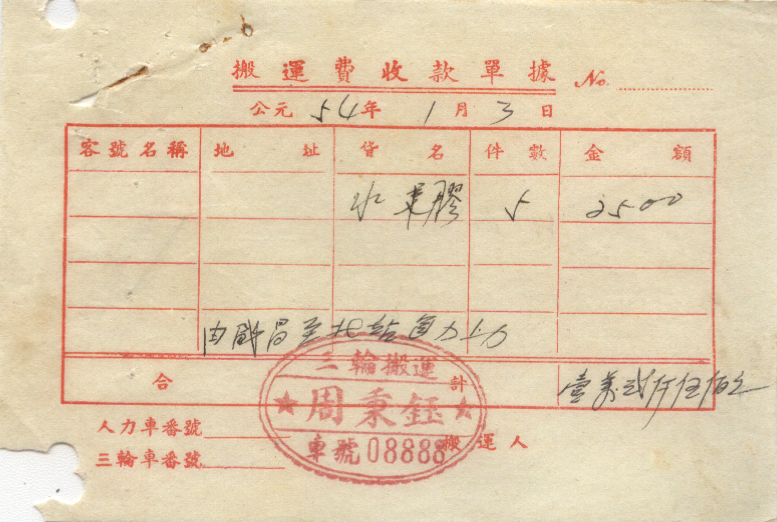 搬運費收款單據 No.
公元 54年 1月 3日
客號名稱 地址 貨名 件數 金額
水 膠 5 2500
由 昌至北站 力上力
合計 壹萬貳仟伍佰元
三輪搬運
周秉鈺
人力車番號 搬運人
三輪車番號 車號08888